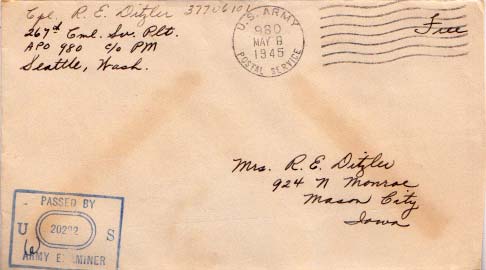 Cpl. R. E. Ditzler 37706101
267th Cml. Sv. Plt.
APO 980 c/o PM
Seattle, Wash.
U.S. ARMY
980
MAY 8
1945
POSTAL SERVICE
Free
Mrs. R. E. Ditzler
924 N Monroe
Mason City
Iowa
PASSED BY
U 20292 S
ARMY EXAMINER